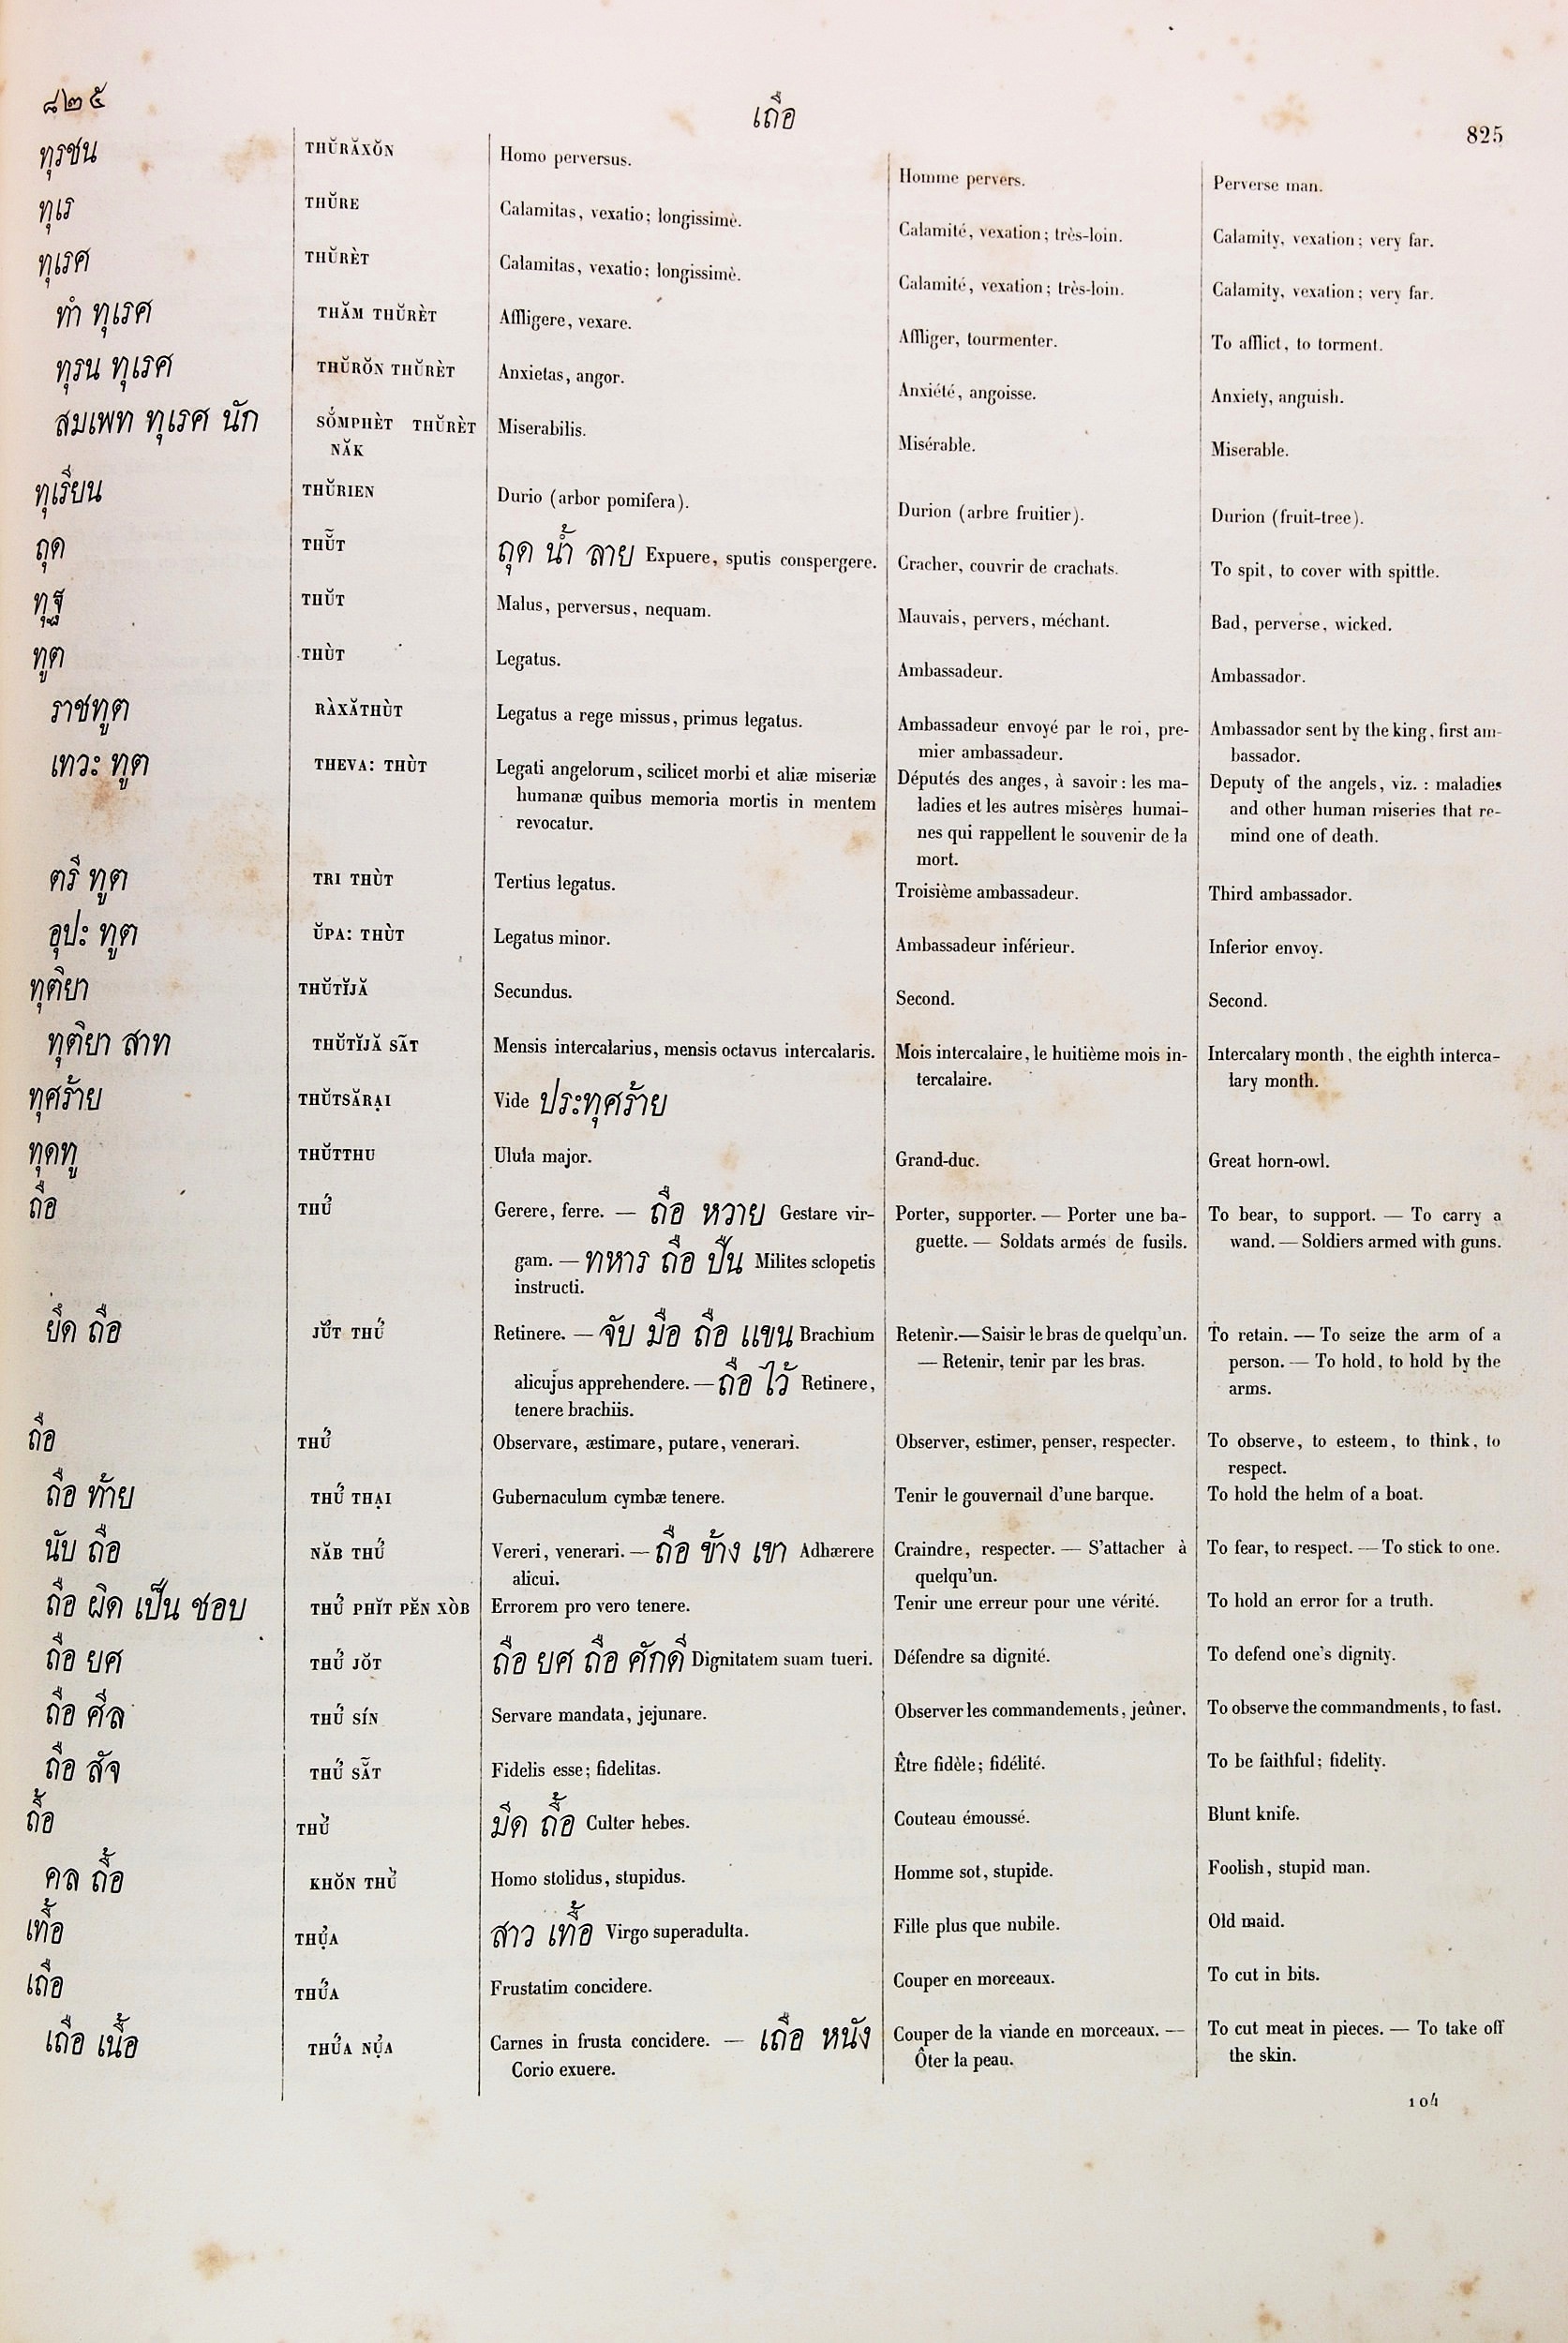 ๘๒๕ เถือ 825
ทุรชน THŬRĂXŎN Homo perversus. Homme pervers. Perverse man.
ทุเร THŬRE Calamitas, vexatio; longissimè. Calamité, vexation; très-loin. Calamity, vexation; very far.
ทุเรศ THŬRÈT Calamitas, vexatio; longissimè. Calamité, vexation; très-loin. Calamity, vexation; very far.
ทำ ทุเรศ THĂM THŬRÈT Affligere, vexare. Affliger, tourmenter. To afflict, to torment.
ทุรน ทุเรศ THŬRŎN THŬRÈT Anxietas, angor. Anxiété, angoisse. Anxiety, anguish.
สมเพท ทุเรศ นัก SŎ́MPHÈT THŬRÈT Miserabilis. Misérable. Miserable.
NĂK
ทุเรียน THŬRIEN Durio (arbor pomifera). Durion (arbre fruitier). Durion (fruit-tree).
ถุด THŬ̃T ถุด น้ำ ลาย Expuere, sputis conspergere. Cracher, couvrir de crachats. To spit, to cover with spittle.
ทุฐ THŬT Malus, perversus, nequam. Mauvais, pervers, méchant. Bad, perverse, wicked.
ทูต THÙT Legatus. Ambassadeur. Ambassador.
ราชทูต RÀXĂTHÙT Legatus a rege missus, primus legatus. Ambassadeur envoyé par le roi, pre- Ambassador sent by the king, first am-
mier ambassadeur. bassador.
เทวะ ทูต THEVA: THÙT Legati angelorum, scilicet morbi et aliæ miseriæ Députés des anges, à savoir: les ma- Deputy of the angels, viz. : maladies
humanæ quibus memoria mortis in mentem ladies et les autres misères humai- and other human miseries that re-
revocatur. nes qui rappellent le souvenir de la mind one of death.
mort.
ตรี ทูต TRI THÙT Tertius legatus. Troisième ambassadeur. Third ambassador.
อุปะ ทูต ŬPA: THÙT Legatus minor. Ambassadeur inférieur. Inferior envoy.
ทุติยา THŬTĬJĂ Secundus. Second. Second.
ทุติยา สาท THŬTĬJĂ SÃT Mensis intercalarius, mensis octavus intercalaris. Mois intercalaire, le huitième mois in- Intercalary month, the eighth interca-
tercalaire. lary month.
ทุศร้าย THŬTSĂRẠI Vide ประทุศร้าย
ทุดทู THŬTTHU Ulula major. Grand-duc. Great horn-owl.
ถือ THỨ Gerere, ferre. — ถือ หวาย Gestare vir- Porter, supporter. — Porter une ba- To bear, to support. — To carry a
gam. — ทหาร ถือ ปืน Milites sclopetis guette. — Soldats armés de fusils. wand. — Soldiers armed with guns.
instructi.
ยึด ถือ JƯ̆T THỨ Retinere. — จับ มือ ถือ แขน Brachium Retenir.—Saisir le bras de quelqu'un. To retain. — To seize the arm of a
alicujus apprehendere. — ถือ ไว้ Retinere, — Retenir, tenir par les bras. person. — To hold, to hold by the
tenere brachiis. arms.
ถือ THỨ Observare, æstimare, putare, venerari. Observer, estimer, penser, respecter. To observe, to esteem, to think, to
respect.
ถือ ท้าย THỨ THẠI Gubernaculum cymbæ tenere. Tenir le gouvernail d'une barque. To hold the helm of a boat.
นับ ถือ NĂB THỨ Vereri, venerari. — ถือ ข้าง เขา Adhærere Craindre, respecter. — S'attacher à To fear, to respect. — To stick to one.
alicui. quelqu'un.
ถือ ผิด เป็น ชอบ THỨ PHĬT PĔN XÒB Errorem pro vero tenere. Tenir une erreur pour une vérité. To hold an error for a truth.
ถือ ยศ THỨ JŎT ถือ ยศ ถือ ศักดิ์ Dignitatem suam tueri. Défendre sa dignité. To defend one's dignity.
ถือ ศีล THỨ SÍN Servare mandata, jejunare. Observer les commandements, jeûner. To observe the commandments, to fast.
ถือ สัจ THỨ SẴT Fidelis esse; fidelitas. Être fidèle; fidélité. To be faithful; fidelity.
ถื้อ THỪ มีด ถื้อ Culter hebes. Couteau émoussé. Blunt knife.
คล ถื้อ KHŎN THỪ Homo stolidus, stupidus. Homme sot, stupide. Foolish, stupid man.
เทื้อ THỰA สาว เทื้อ Virgo superadulta. Fille plus que nubile. Old maid.
เถือ THỨA Frustatim concidere. Couper en morceaux. To cut in bits.
เถือ เนื้อ THỨA NỰA Carnes in frusta concidere. — เถือ หนัง Couper de la viande en morceaux. — To cut meat in pieces. — To take off
Corio exuere. Ôter la peau. the skin.
104